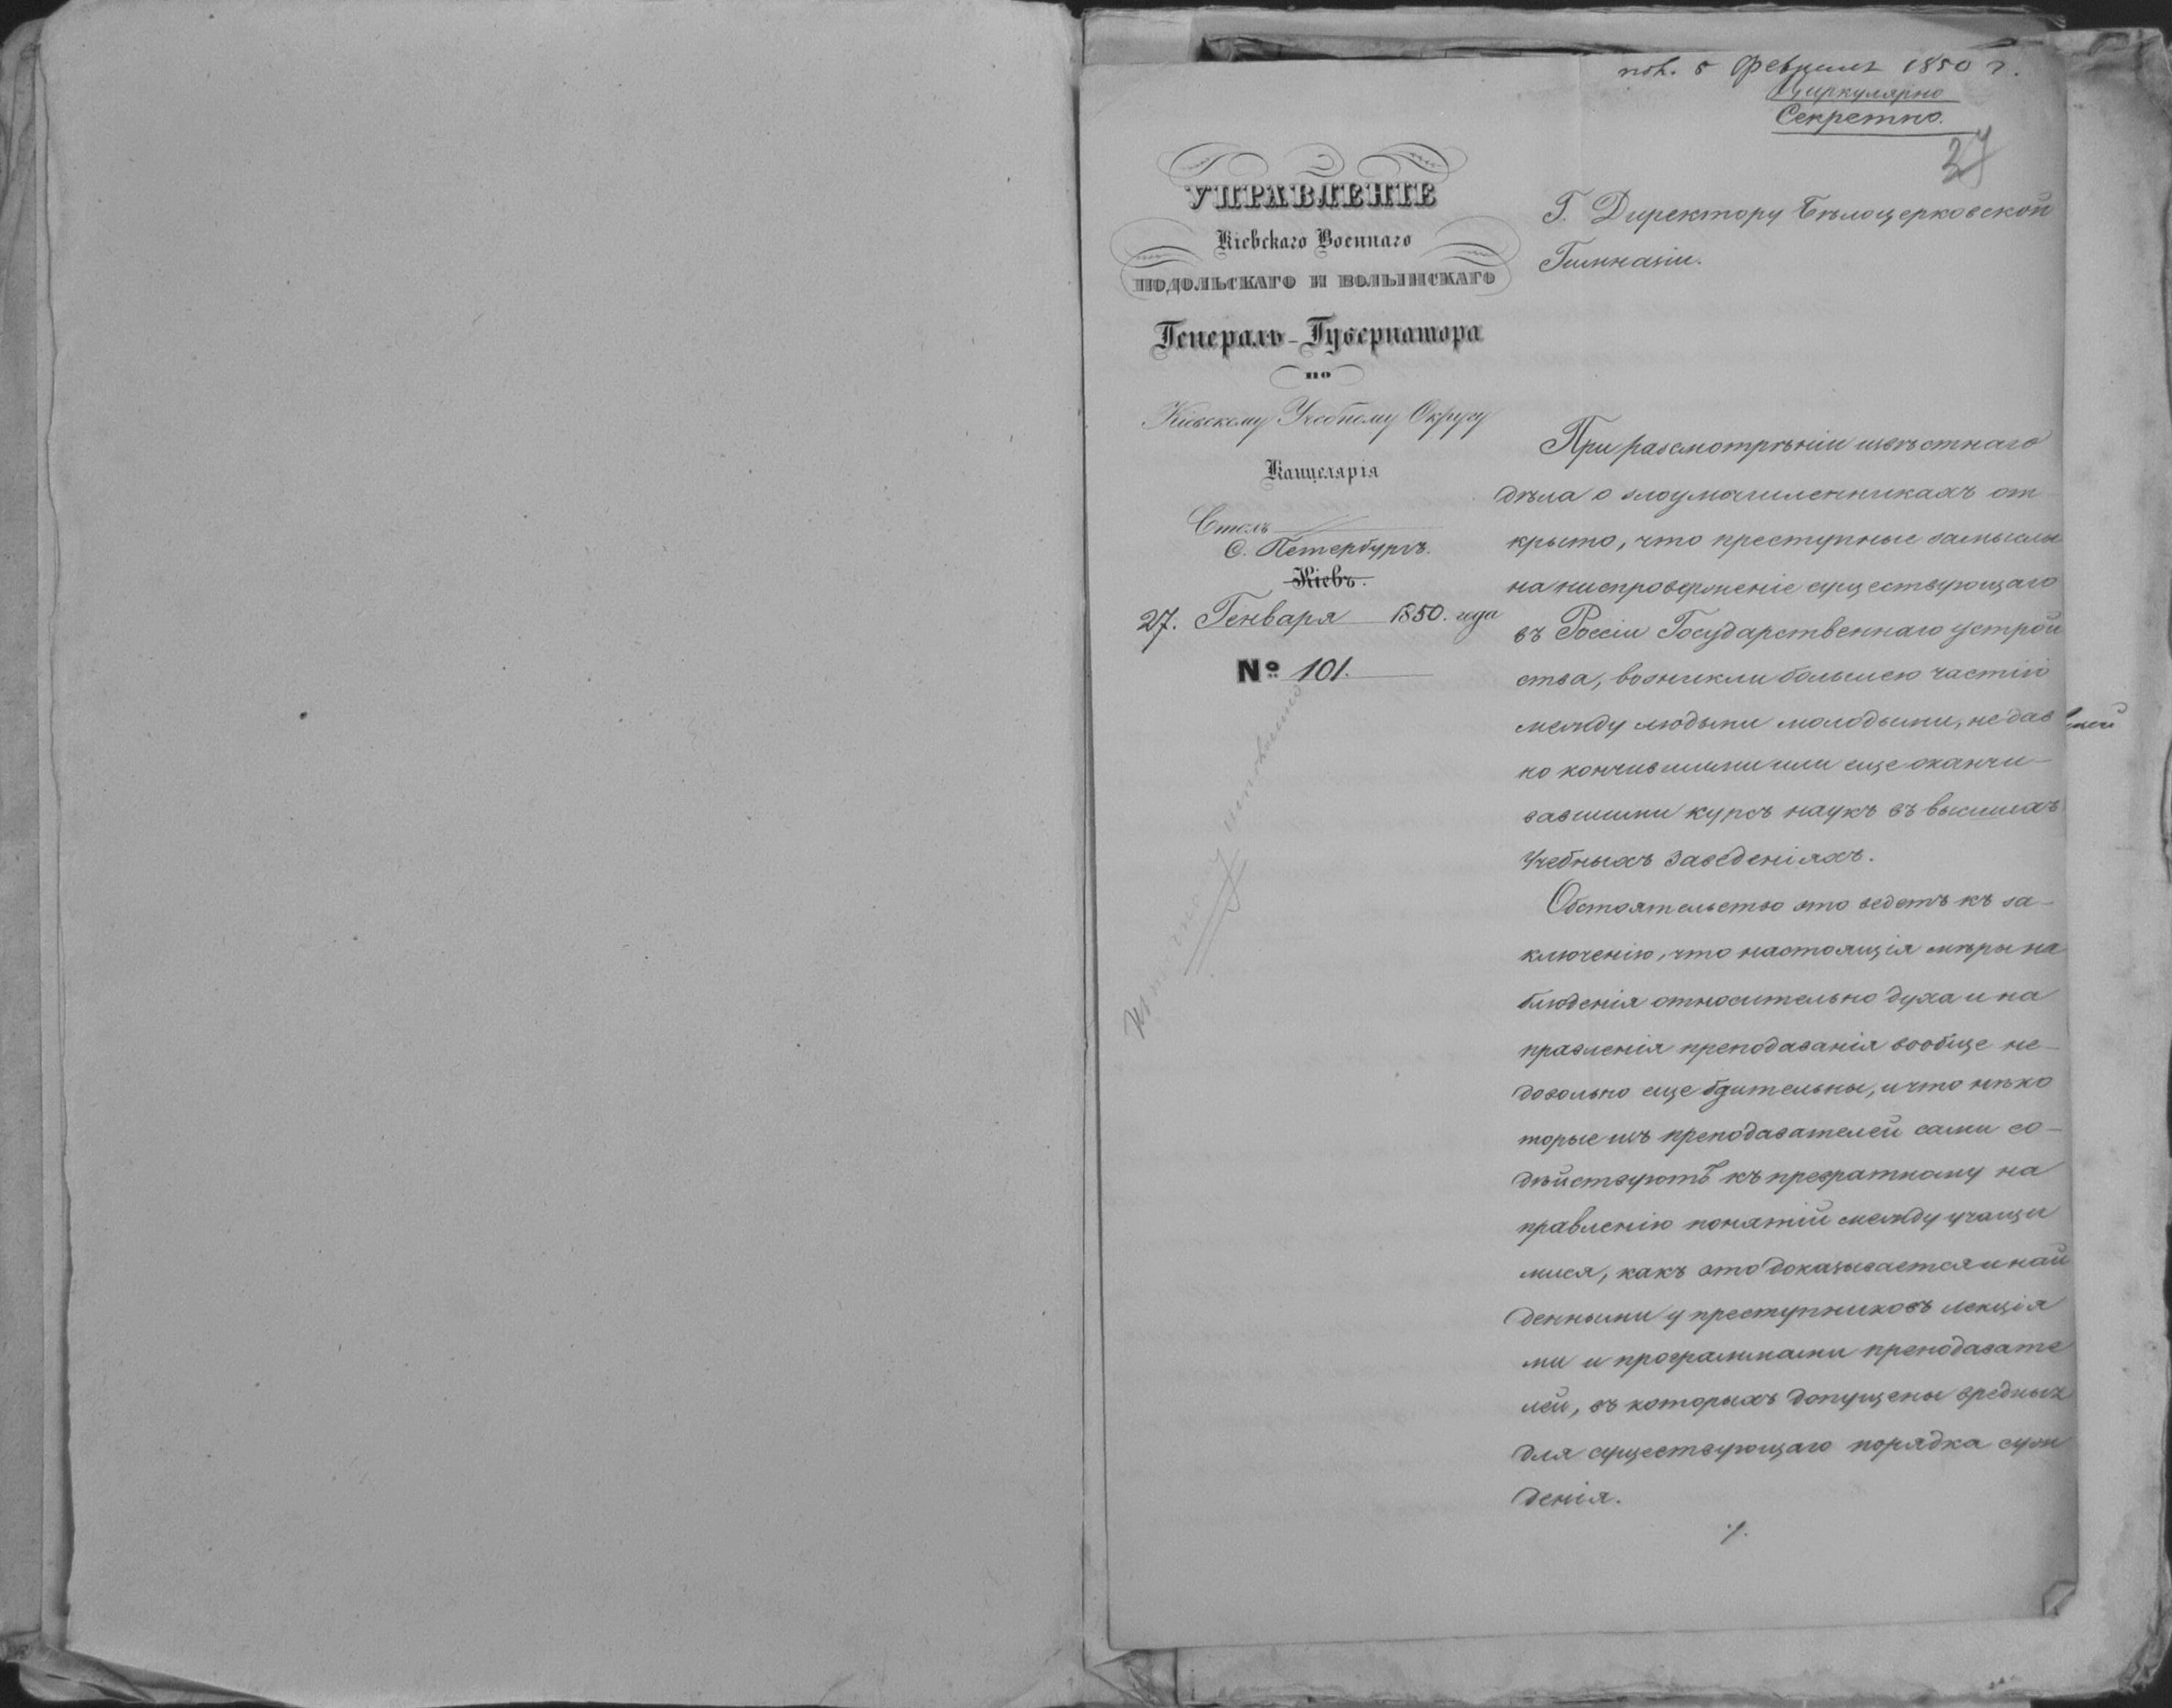 5 Февраля 1850 г.
Циркулярно
Секретно.
УПРАВЛЕНІЕ
Кіевскаго Военнаго
ПОДОЛЬСКАГО И ВОЛЫНСКАГО
Генералъ-Губернатора
по
Кіевскому Учебному Округу
Канцелярія
Столъ
С. Петербургъ.
Кіевъ.
27. Генваря 1850. года
№ 101.
Г. Директору Бѣлоцерковской
Гимназіи.
При разсмотрѣніи извѣстнаго
дѣла о злоумышленникахъ от
крыто, что преступные замыслы
на ниспроверженіе существующаго
въ Россіи Государственнаго устрой
ства, возникли большею частію
между людьми молодыми, недав
но кончившими или еще оканчи-
вавшими курсъ наукъ въ высшихъ
Учебныхъ Заведеніяхъ.
Обстоятельство это ведетъ къ за-
ключенію, что настоящія мѣры на
блюденія относительно духа и на
правленія преподаванія вообще не-
довольно еще бдительны, и что нѣко
торые изъ преподавателей сами со-
дѣйствуютъ къ превратному на
правленію понятій между учащи
мися, какъ это доказывается и най
денными у преступниковъ лекція
ми и программами преподавате
лей, въ которыхъ допущены вредныя
для существующаго порядка суж
денія.
./.